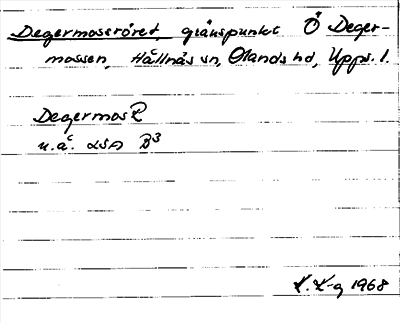 Degermossröret, gränspunkt Ö Deger-
mossen, Hållnäs sn, Olands hd, Upps. l.
Degermos R
u.å. LSA B3
K. L-g 1968